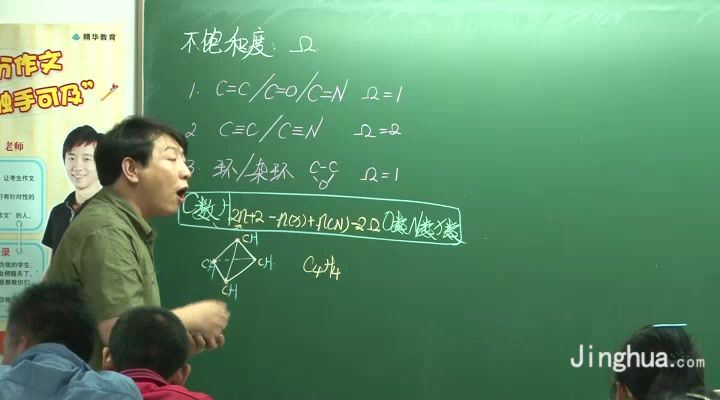 精华教育
作文
触手可及”
老师
让考生作文
行有针对性的
作文”的人。
录
为我的学生
不饱和度：Ω
1. C=C/C=O/C=N Ω=1
2 C≡C/C≡N Ω=2
3 环/杂环 C-C O Ω=1
C数H 2n+2-n(X)+n(N)-2Ω O数N数X数
CH
CH CH
CH
C₄H₄
Jinghua.com